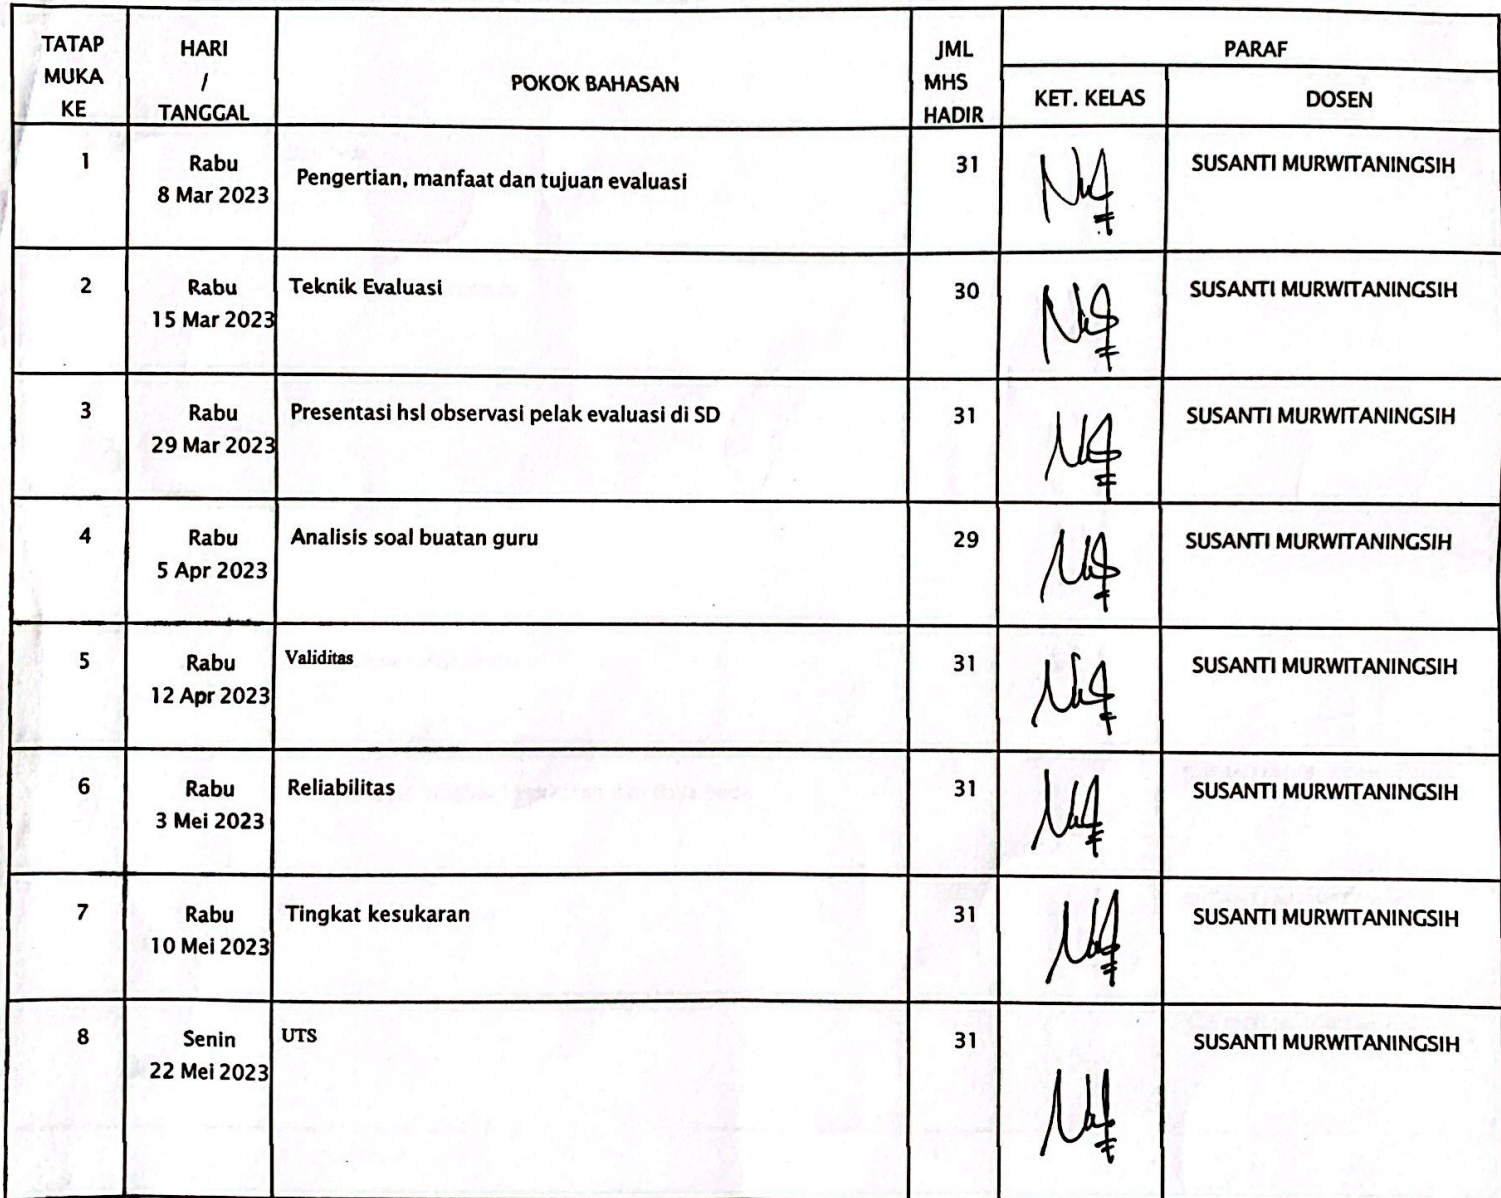 TATAP MUKA KE
HARI / TANGGAL
POKOK BAHASAN
JML MHS HADIR
PARAF
KET. KELAS
DOSEN
1
Rabu
8 Mar 2023
Pengertian, manfaat dan tujuan evaluasi
31
SUSANTI MURWITANINGSIH
2
Rabu
15 Mar 2023
Teknik Evaluasi
30
SUSANTI MURWITANINGSIH
3
Rabu
29 Mar 2023
Presentasi hsl observasi pelak evaluasi di SD
31
SUSANTI MURWITANINGSIH
4
Rabu
5 Apr 2023
Analisis soal buatan guru
29
SUSANTI MURWITANINGSIH
5
Rabu
12 Apr 2023
Validitas
31
SUSANTI MURWITANINGSIH
6
Rabu
3 Mei 2023
Reliabilitas
31
SUSANTI MURWITANINGSIH
7
Rabu
10 Mei 2023
Tingkat kesukaran
31
SUSANTI MURWITANINGSIH
8
Senin
22 Mei 2023
UTS
31
SUSANTI MURWITANINGSIH